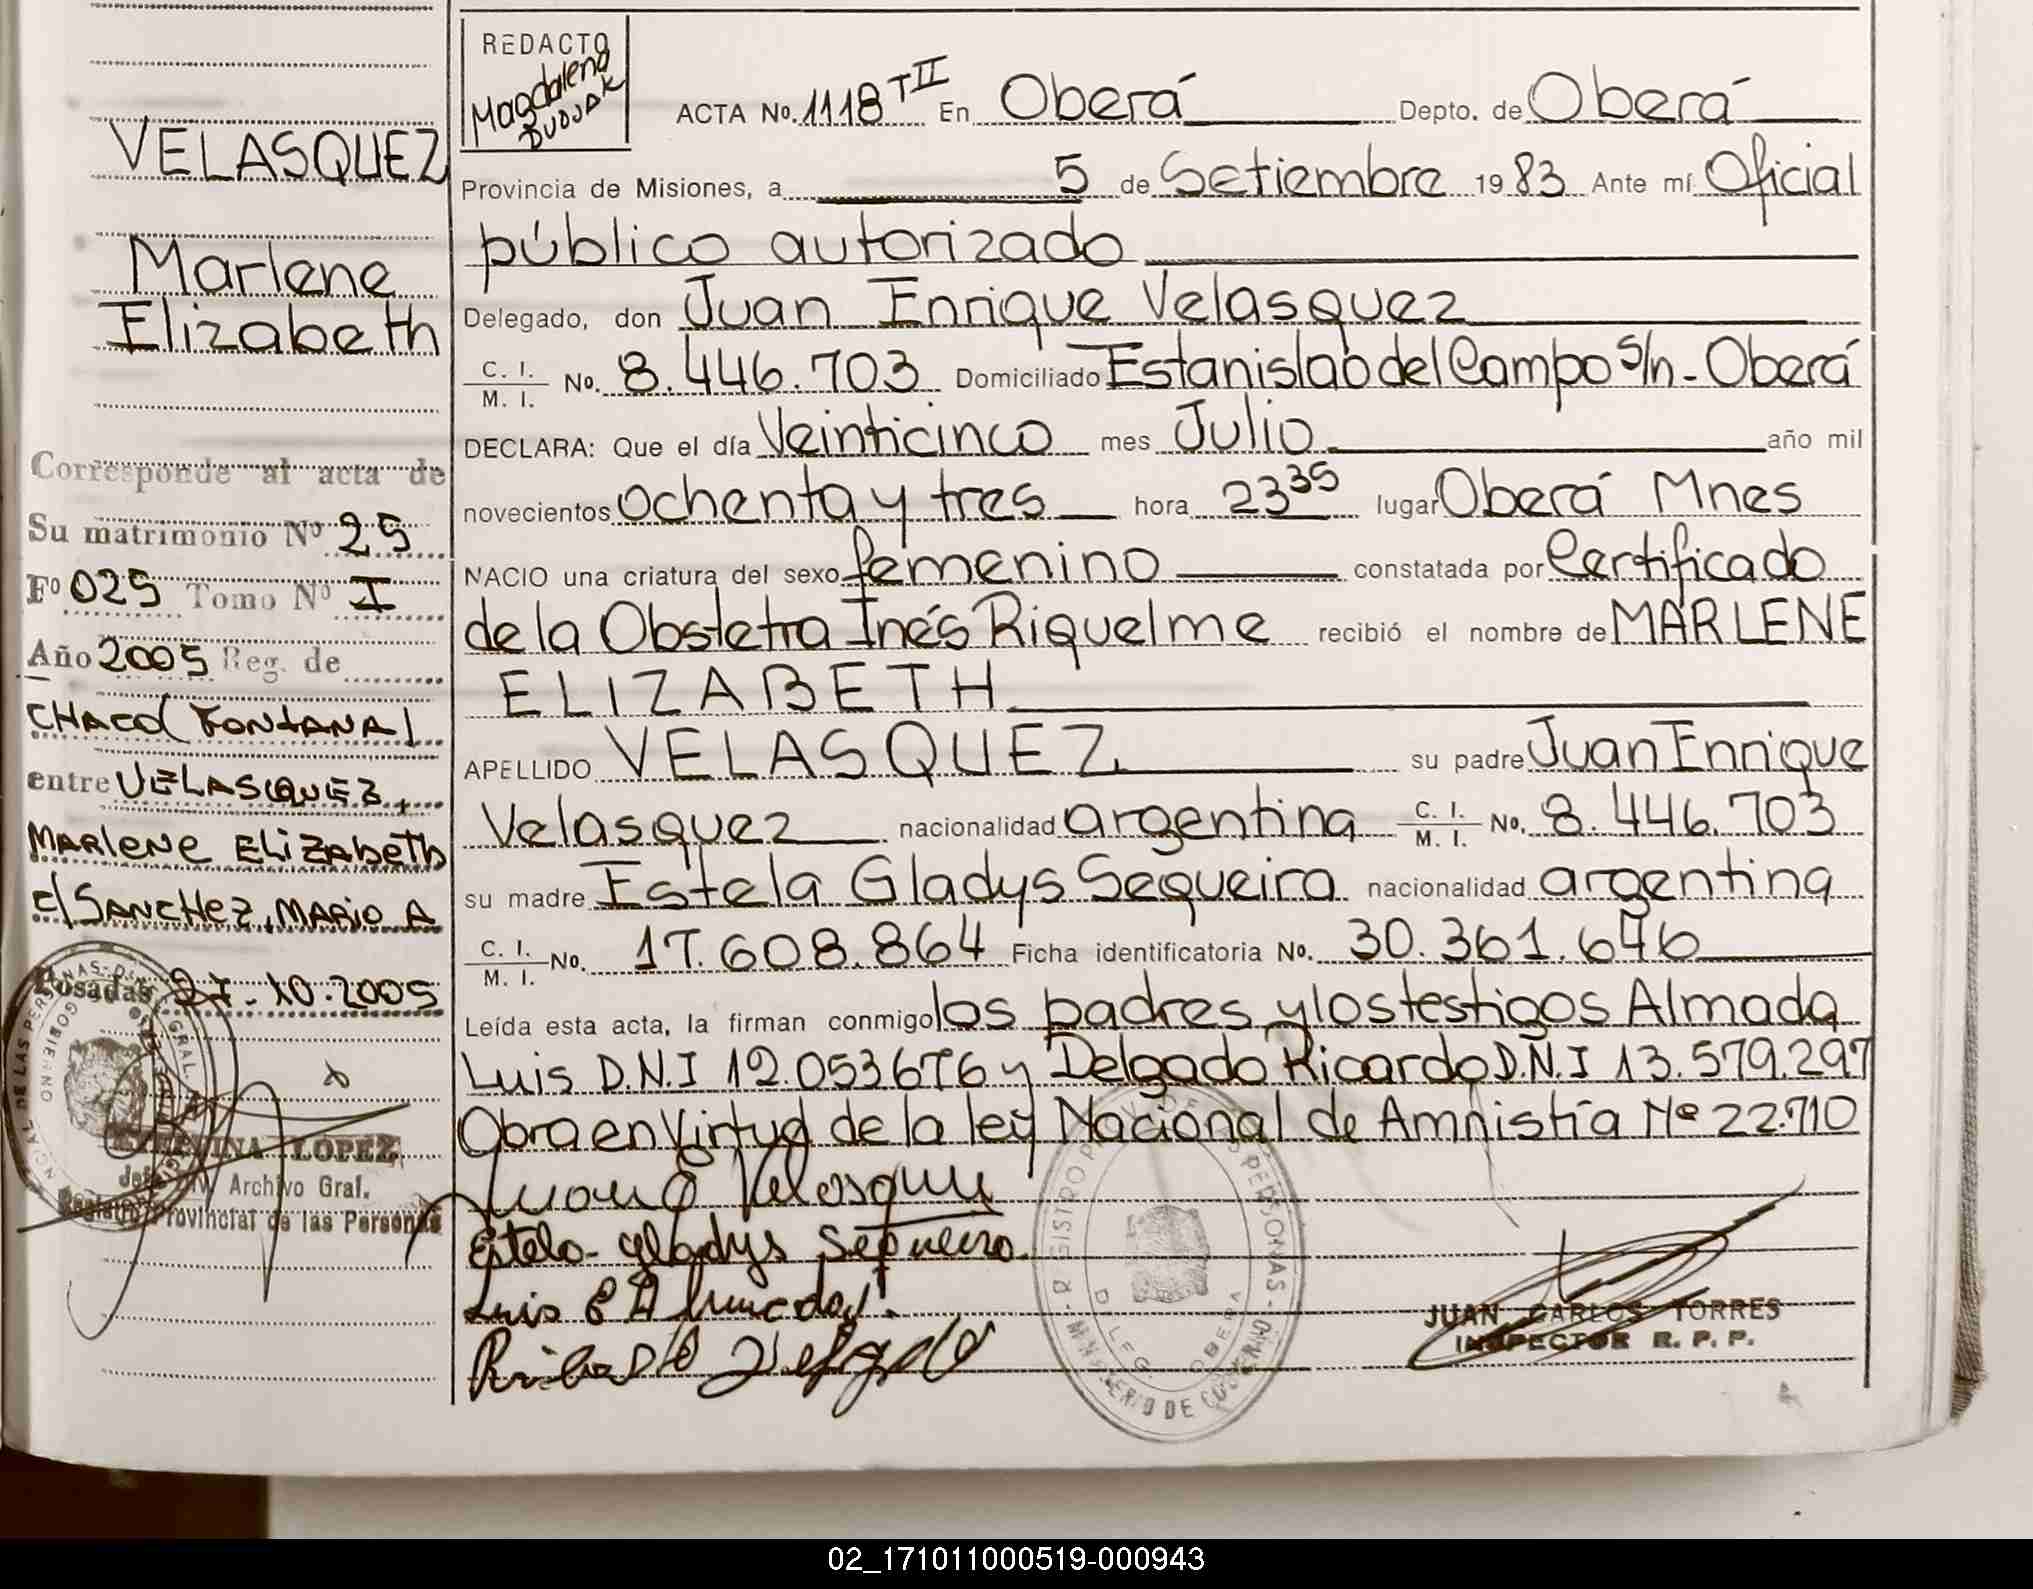 REDACTO
Magdalena
DUDJAK
VELASQUEZ
Marlene
Elizabeth
Corresponde al acta de
Su matrimonio Nº 25
Fº 025 Tomo Nº I
Año 2005 Reg. de
CHACO (FONTANA)
entre VELASQUEZ,
MARLENE ELIZABETH
c/ SANCHEZ, MARIO A
Posadas, 27.10.2005
LOPEZ
Jefe Div. Archivo Gral.
Registro Provincial de las Personas
ACTA No. 1118 T II En Oberá Depto. de Oberá
Provincia de Misiones, a 5 de Setiembre 1983 Ante mí Oficial
público autorizado
Delegado, don Juan Enrique Velasquez
C. I. M. I. No. 8.446.703 Domiciliado Estanislao del Campo s/n - Oberá
DECLARA: Que el día Veinticinco mes Julio año mil
novecientos ochenta y tres hora 23 35 lugar Oberá Mnes
NACIO una criatura del sexo femenino constatada por Certificado
de la Obstetra Inés Riquelme recibió el nombre de MARLENE
ELIZABETH
APELLIDO VELASQUEZ su padre Juan Enrique
Velasquez nacionalidad argentina C. I. M. I. No. 8.446.703
su madre Estela Gladys Sequeira nacionalidad argentina
C. I. M. I. No. 17.608.864 Ficha identificatoria No. 30.361.676
Leída esta acta, la firman conmigo los padres y los testigos Almada
Luis D.N.I 12.053676 y Delgado Ricardo D.N.I 13.579.297
Obra en Virtud de la ley Nacional de Amnistía Nº 22.710
Juan E Velasquez
Estela Gladys Sequeira
Luis E Almada
Ricardo Delgado
REGISTRO PROV. DE LAS PERSONAS
DELEG. OBERA
JUAN CARLOS TORRES
INSPECTOR R. P. P.
02_171011000519-000943